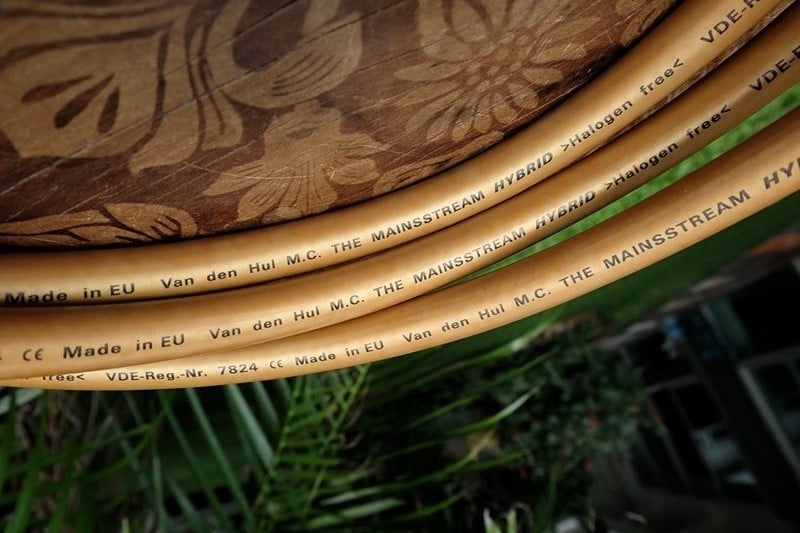 Made in EU Van den Hul M.C. THE MAINSSTREAM HYBRID >Halogen free< VDE-Reg
CE Made in EU Van den Hul M.C. THE MAINSSTREAM HYBRID >Halogen free< VDE-R
free< VDE-Reg.-Nr. 7824 CE Made in EU Van den Hul M.C. THE MAINSSTREAM HY